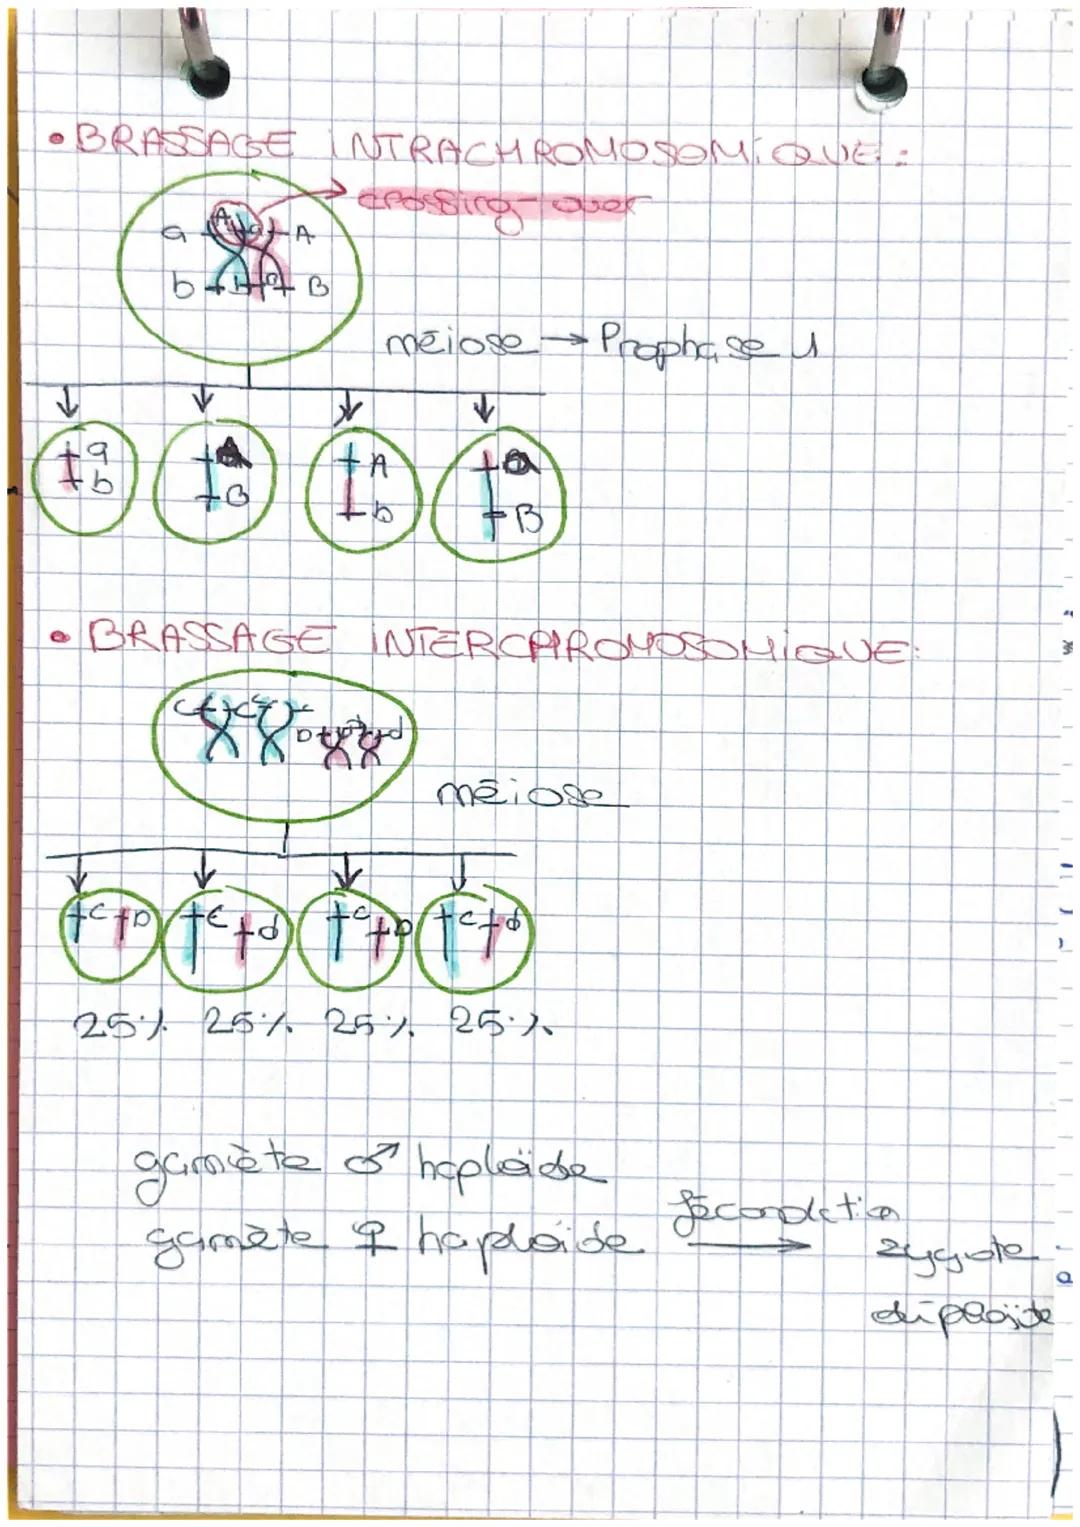 • BRASSAGE INTRACHROMOSOMIQUE :
crossing-over
A a
a A
b b B B
méiose → Prophase 1
a A
b
B
b B
• BRASSAGE INTERCHROMOSOMIQUE:
méiose
C D C d C D C d
25% 25% 25% 25%
gamète ♂ haploïde
fécondation
gamète ♀ haploïde → zygote
diploïde